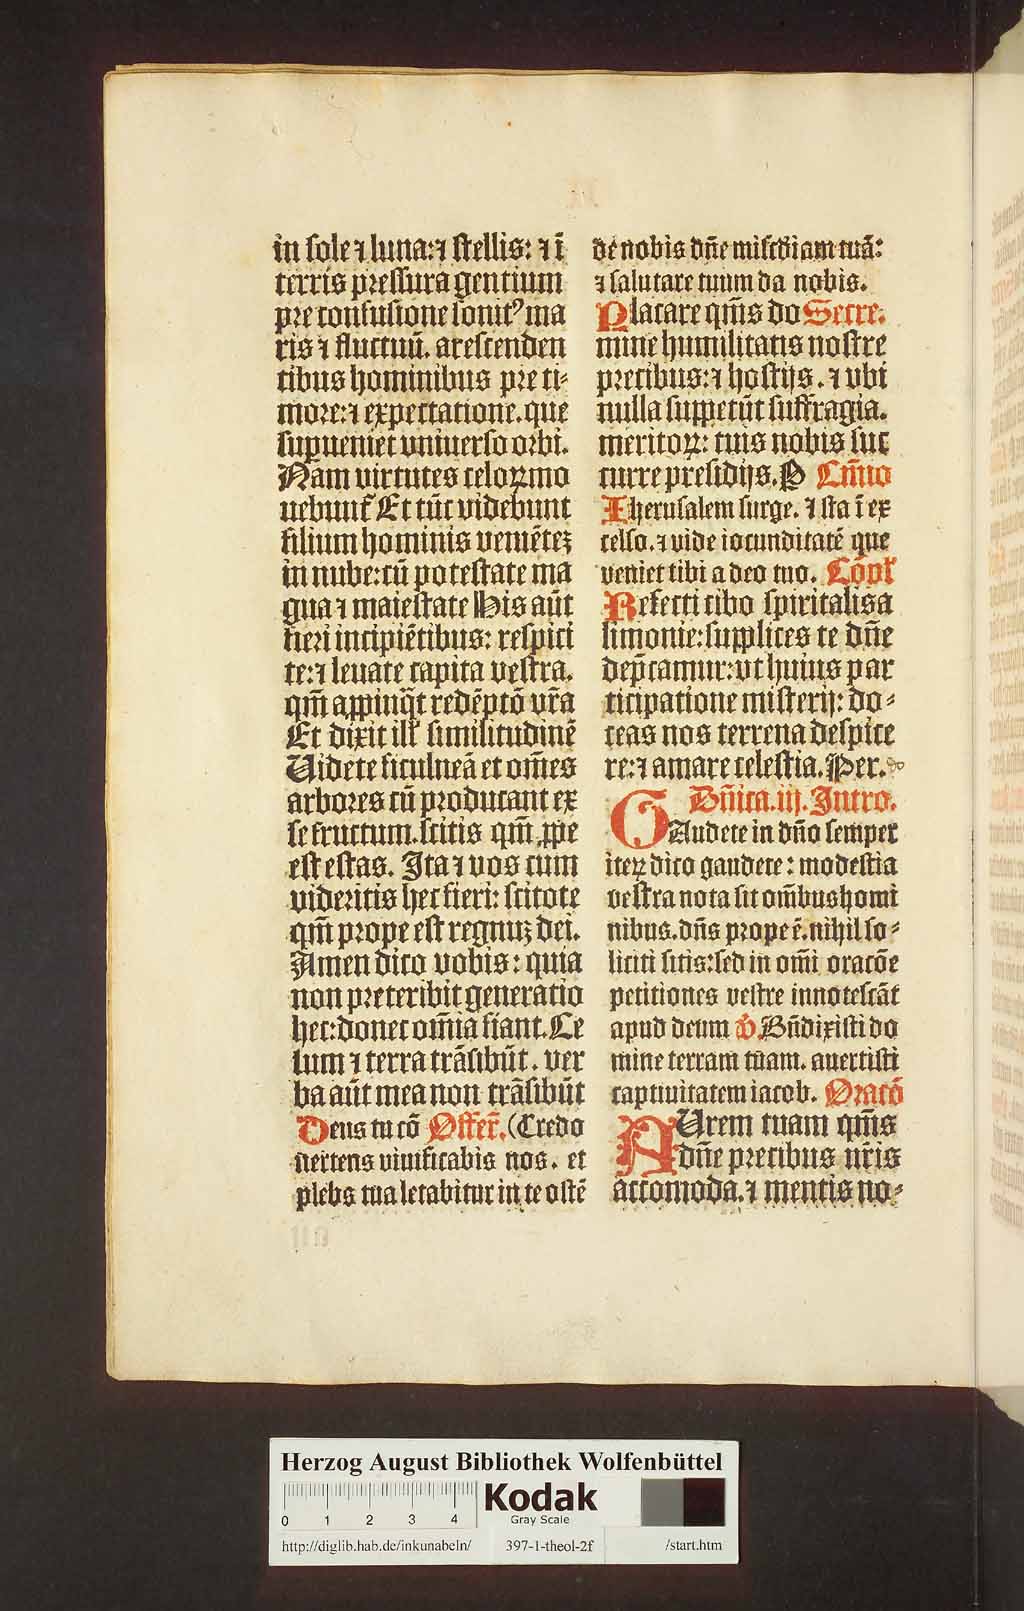 in sole ⁊ luna: ⁊ stellis: ⁊ ī
terris pressura gentium
pre confusione sonitꝰ ma
ris ⁊ fluctuū. arescenden
tibus hominibus pre ti⸗
more: ⁊ expectatione. que
supueniet vniuerso orbi.
Nam virtutes celoꝝ mo
uebunt᷑ Et tūc videbunt
filium hominis veniētēꝫ
in nube: cū potestate ma
gna ⁊ maiestate His aūt
fieri incipiētibus: respici
te: ⁊ leuate capita vestra.
qm̄ appinq̄t redēptō vr̄a
Et dixit ill̓ similitudinē
Videte ficulneā et om̄es
arbores cū producant ex
se fructum. scitis qm̄ ꝓpe
est estas. Ita ⁊ vos cum
videritis hec fieri: scitote
qm̄ prope est regnuꝫ dei.
Amen dico vobis: quia
non preteribit generatio
hec: donec om̄ia fiant. Ce
lum ⁊ terra trāsibūt. ver
ba aūt mea non trāsibūt
Deus tu cō Offer̄. (Credo
uertens viuificabis nos. et
plebs tua letabitur in te ostē
de nobis dn̄e misc̄diam tuā:
⁊ salutare tuum da nobis.
Placare qm̄s do Secre.
mine humilitatis nostre
precibus: ⁊ hostijs. ⁊ vbi
nulla suppetūt suffragia.
meritoꝝ: tuis nobis suc
curre presidijs. P Cm̄io
Iherusalem surge. ⁊ sta ī ex
celso. ⁊ vide iocunditatē que
veniet tibi a deo tuo. Cōpl̓
Refecti cibo spiritalis a
limonie: supplices te dn̄e
dep̄camur: vt huius par
ticipatione misterij: do⸗
ceas nos terrena despice
re: ⁊ amare celestia. Per. do
Dn̄ica. iij. Intro.
GAudete in dn̄o semper
iteꝝ dico gaudete: modestia
vestra nota sit om̄bus homi
nibus. dn̄s prope ē. nihil so⸗
liciti sitis: sed in om̄i oracōe
petitiones vestre innotescāt
apud deum v̓. Bn̄dixisti do
mine terram tuam. auertisti
captiuitatem iacob. Oracō
AUrem tuam qm̄s
dn̄e precibus nr̄is
accomoda. ⁊ mentis no⸗
Herzog August Bibliothek Wolfenbüttel
0 1 2 3 4
Kodak
Gray Scale
http://diglib.hab.de/inkunabeln/ 397-1-theol-2f /start.htm